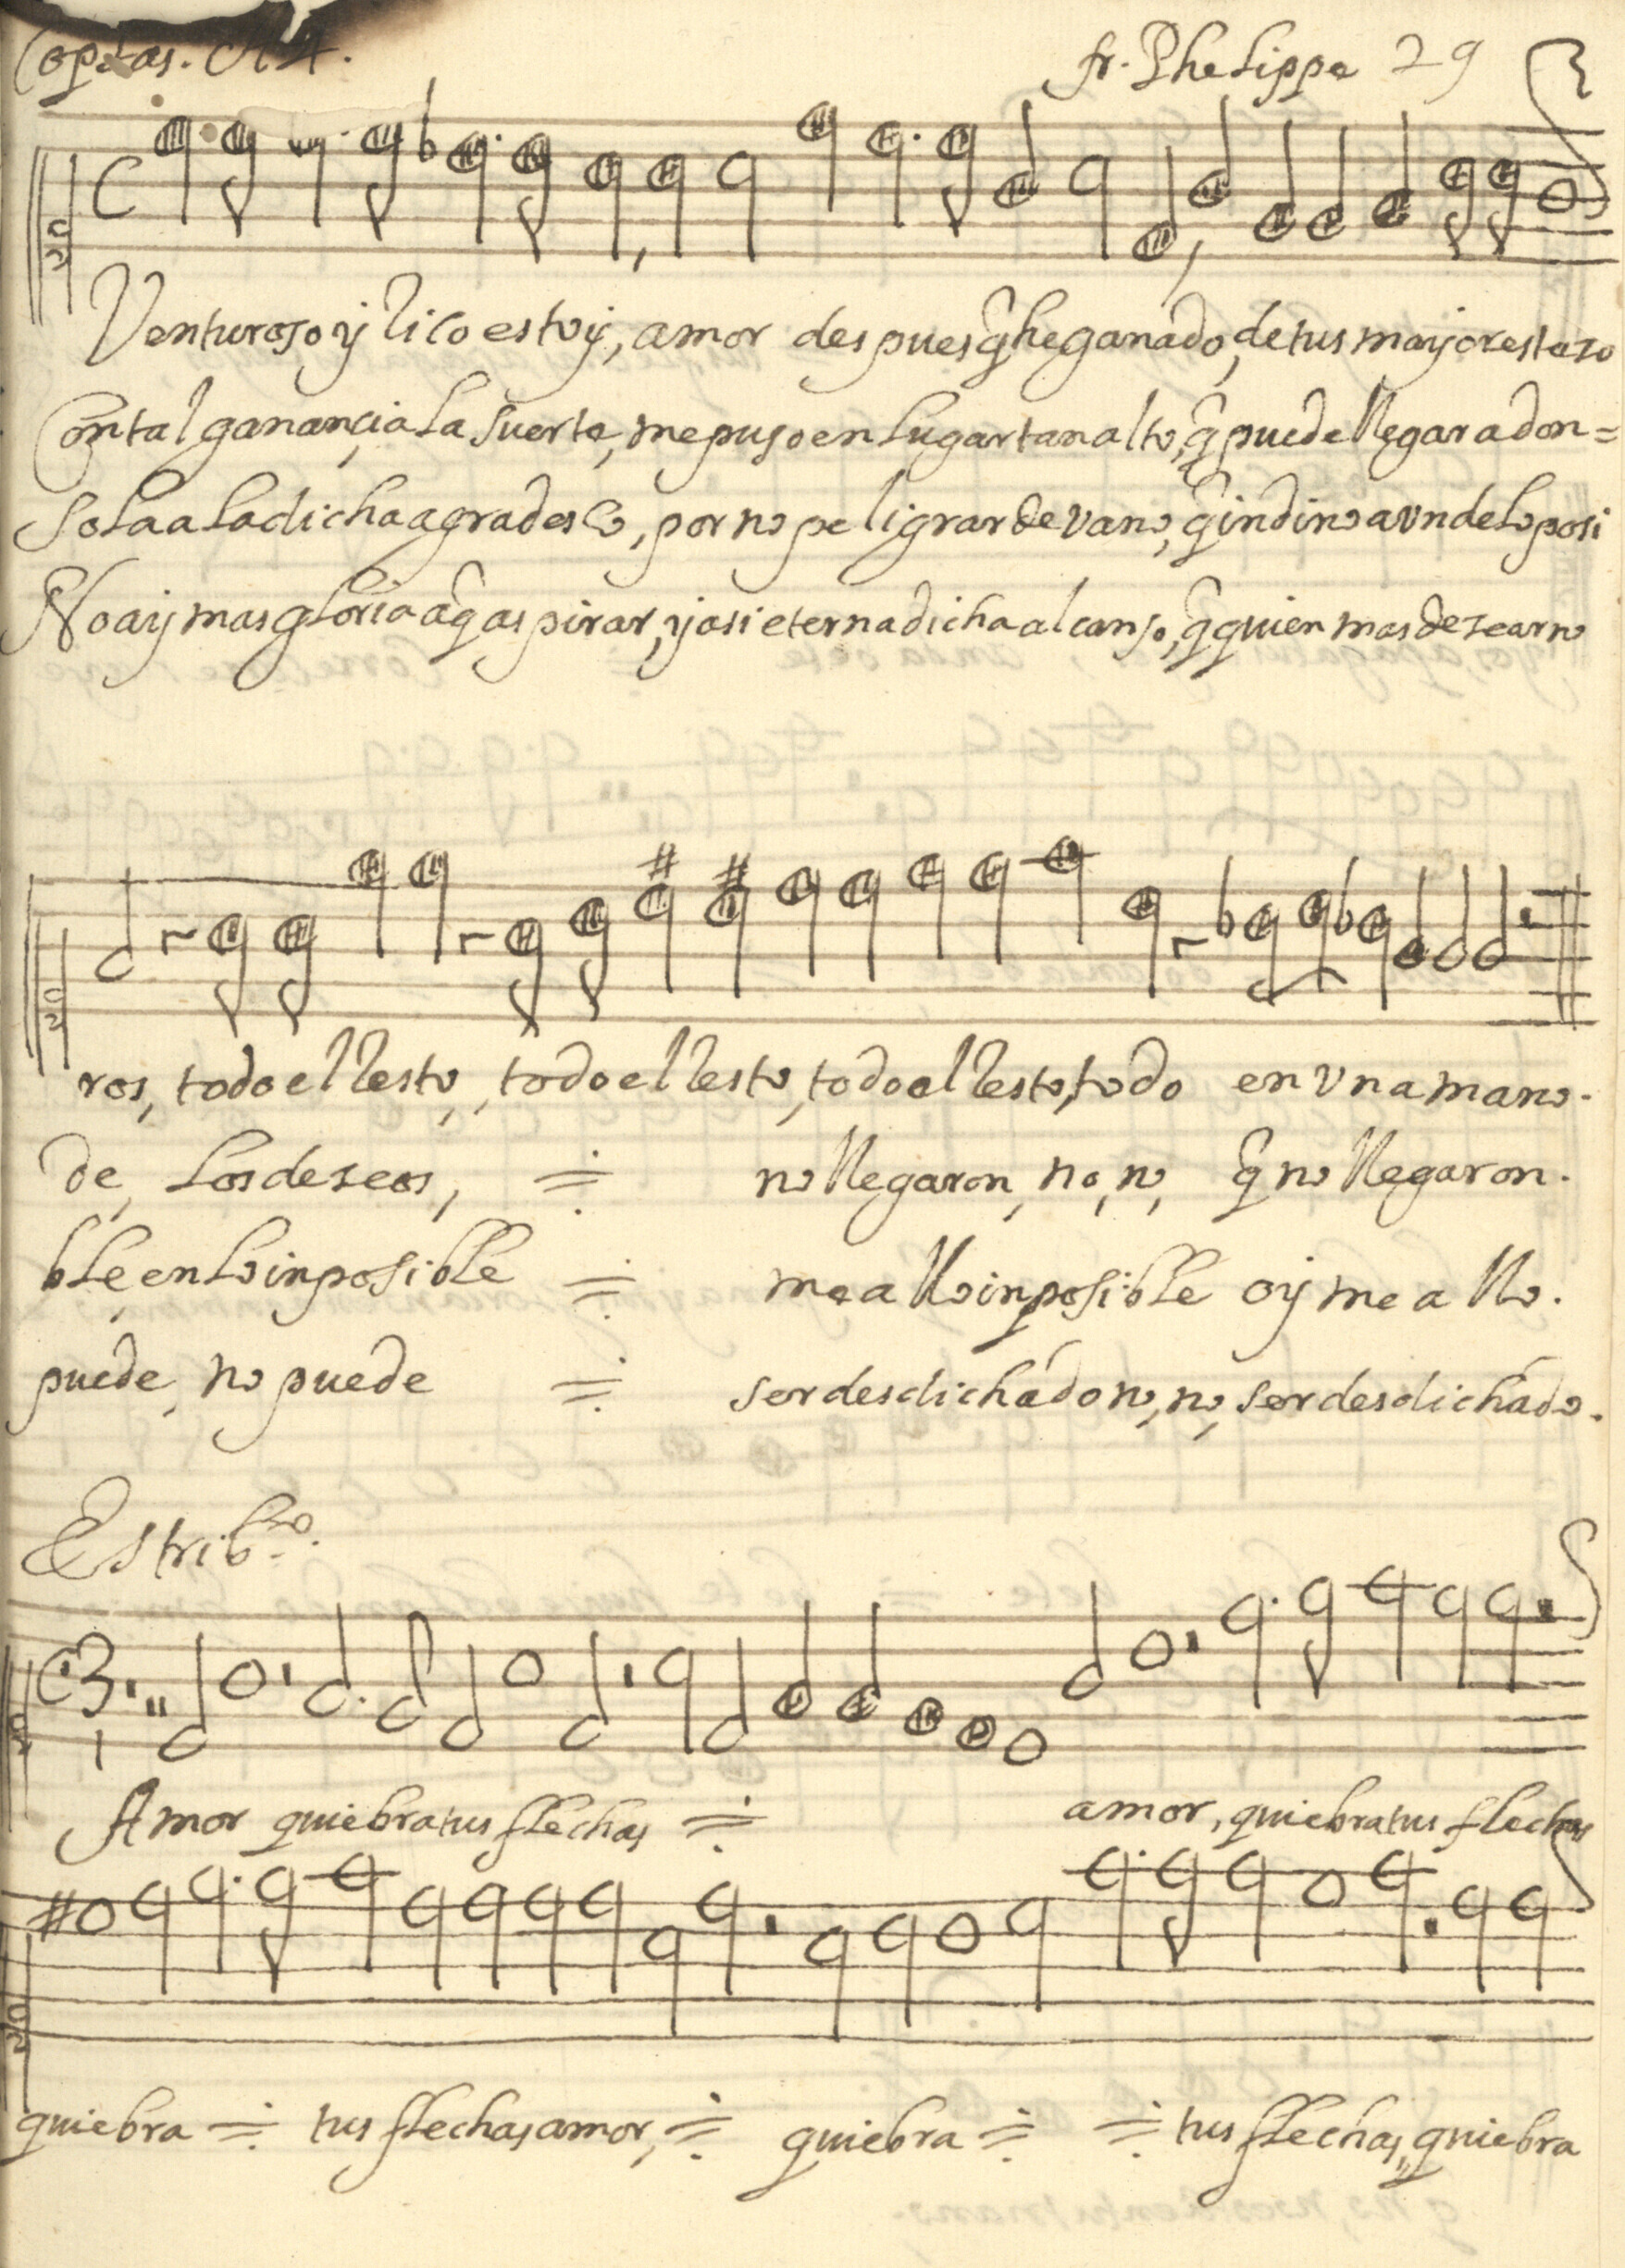 Coplas. A 4. fr. Phelippe 29
Venturoso y rico estoy, amor despues q̃ he ganado, de tus mayores teso
Con tal ganançia la suerte, me puso en lugar tan alto, q̃ puede llegar adon=
Sola a la dicha agradesco, por no peligrar de vano, q̃ indino aun de lo posi
No ay mas gloria a q̃ aspirar, y asi eterna dicha alcanso, q̃ quien mas desear no
ros, todo el resto, todo el resto, todo el resto, todo en vna mano.
de, los deseos, no llegaron, no, no, q̃ no llegaron.
ble, en lo inposible me allo inposible oy me allo.
puede, no puede ser desdichado no, no, ser desdichado.
Estrib.lo
C3
1
Amor quiebra tus flechas amor, quiebra tus flechas
quiebra tus flechas amor, quiebra tus flechas, quiebra